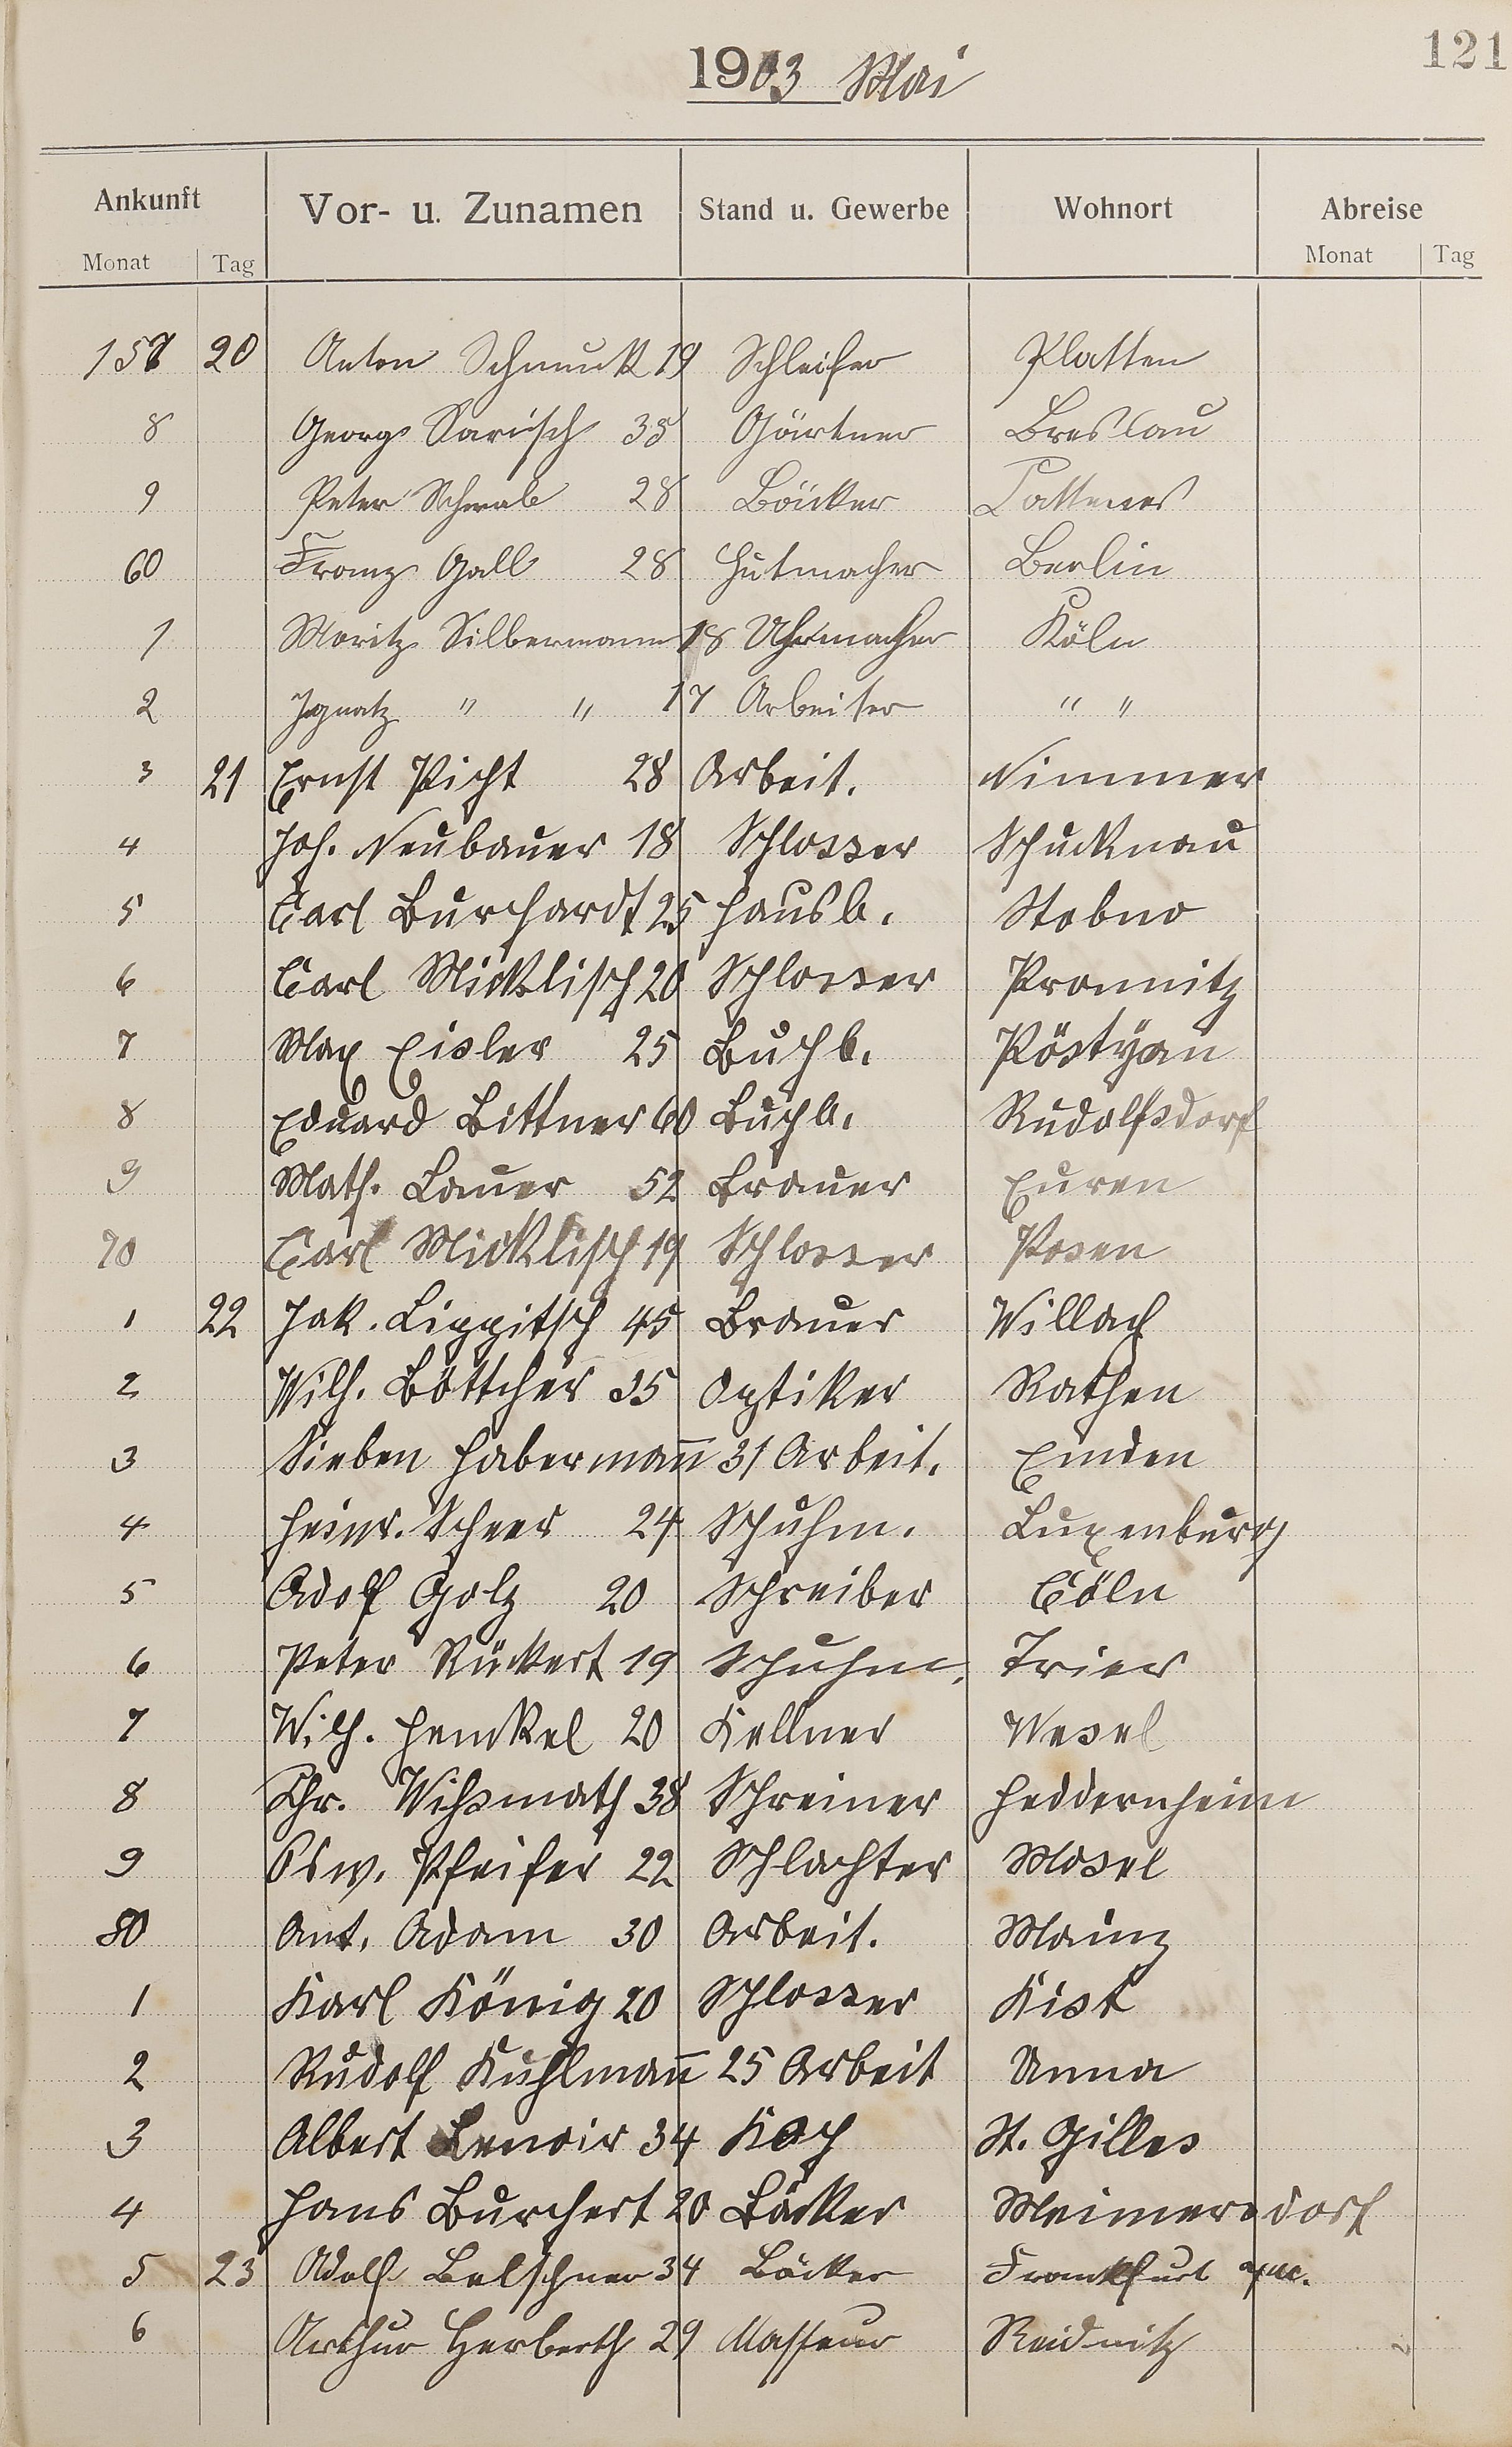 121
1903 Mai
Ankunft Vor- u. Zunamen Stand u. Gewerbe Wohnort Abreise
Monat Tag Monat Tag
157 20 Anton Schmuck 19 Schleifer Platten
8 Georg Sarisch 35 Gärtner Breslau
9 Peter Schwab 28 Bäcker
60 Franz Gall 28 Hutmacher Berlin
1 Moritz Silbermann 18 Uhrmacher Köln
2 Ignatz " " 17 Arbeiter " "
3 21 Ernst Picht 28 Arbeit. Nimmer
4 Joh. Neubauer 18 Schlosser Schucknau
5 Carl Burchardt 25 Hausb. Stobno
6 Carl Micklisch 20 Schlosser Promnitz
7 Max Eisler 25 Buchb. Pöstyan
8 Eduard Bittner 60 Buchb. Rudolfsdorf
9 Math. Lauer 52 Brauer Euren
70 Carl Micklisch 19 Schlosser Posen
1 22 Jak. Lippitsch 45 Brauer Willach
2 Wilh. Böttcher 35 Optiker Rathen
3 Sieben Haberman̄ 31 Arbeit. Emden
4 Heinr. Scheer 24 Schuhm. Luxenburg
5 Adolf Golz 20 Schreiber Cöln
6 Peter Rückert 19 Schuhm. Trier
7 Wilh. Henckel 20 Kellner Wesel
8 Chr. Wihsmath 38 Schreiner Heddernheim
9 Osw. Pfeifer 22 Schlachter Mosel
80 Ant. Adam 30 Arbeit. Mainz
1 Karl König 20 Schlosser Kist
2 Rudolf Kuhlman̄ 25 Arbeit Unna
3 Albert Lenoir 34 Koch St. Gilles
4 Hans Burchert 20 Bäcker Meimersdorf
5 23 Adolf Belschner 34 Bäcker Frankfurt a/M.
6 Arthur Herberth 29 Masseur Reidnitz